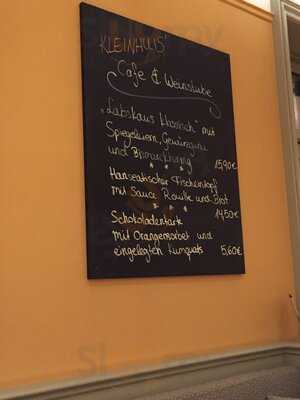 KLEINHUIS'
Cafe & Weinstube
„Labskaus klassisch" mit
Spiegeleiern, Gewürzgurke
und Bismarckhering 15,90€
* * *
Hanseatischer Fischeintopf
mit Sauce Rouille und Brot
* * * 14,50€
Schokoladentarte
mit Orangensorbet und
eingelegten Kumquats 5,60€